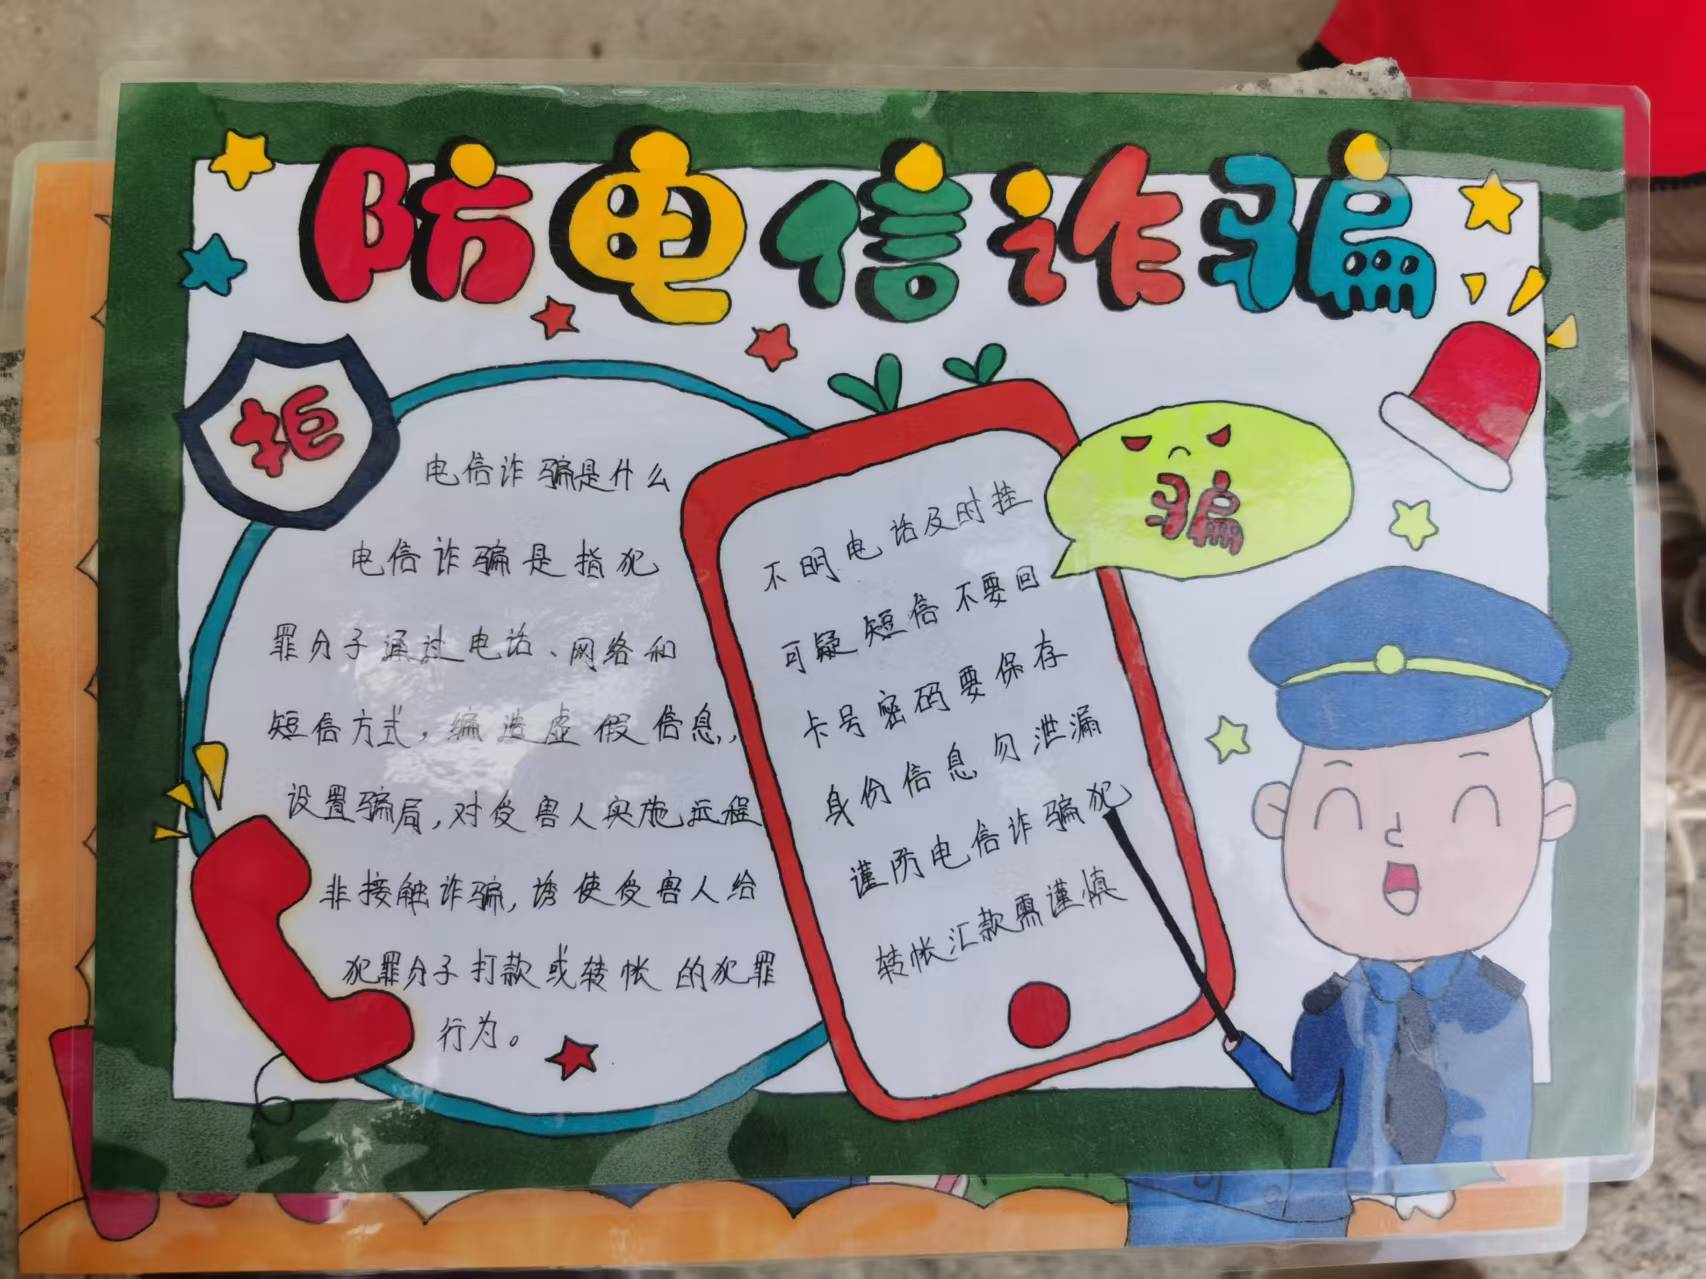 防电信诈骗
拒
电信诈骗是什么
电信诈骗是指犯
罪分子通过电话、网络和
短信方式，编造虚假信息，
设置骗局，对受害人实施远程
非接触诈骗，诱使受害人给
犯罪分子打款或转帐的犯罪
行为。
骗
不明电话及时挂
可疑短信不要回
卡号密码要保存
身份信息勿泄漏
谨防电信诈骗犯
转帐汇款需谨慎